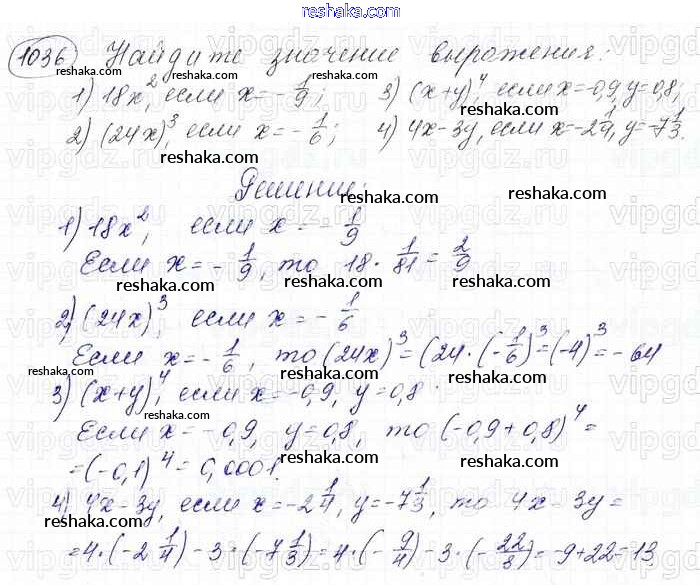 reshaka.com
1036 Найдите значение выражения:
1) 18x², если x = -1/9; 3) (x+y)⁴, если x=-0,9, y=0,8;
2) (24x)³, если x = -1/6; 4) 4x-3y, если x=-2 1/4, y=-7 1/3.
reshaka.com reshaka.com
Решение:
reshaka.com
1) 18x², если x = -1/9
Если x = -1/9, то 18 · 1/81 = 2/9
reshaka.com reshaka.com
2) (24x)³ если x = -1/6
reshaka.com reshaka.com
Если x = -1/6, то (24x)³ = (24·(-1/6)³ = (-4)³ = -64
3) (x+y)⁴, если x=-0,9, y=0,8
reshaka.com reshaka.com
Если x = -0,9, y=0,8, то (-0,9+0,8)⁴ =
= (-0,1)⁴ = 0,0001.
reshaka.com reshaka.com
4) 4x-3y, если x=-2 1/4, y=-7 1/3, то 4x-3y =
reshaka.com reshaka.com
= 4·(-2 1/4) - 3·(-7 1/3) = 4·(-9/4) - 3·(-22/3) = -9+22=13.
reshaka.com reshaka.com